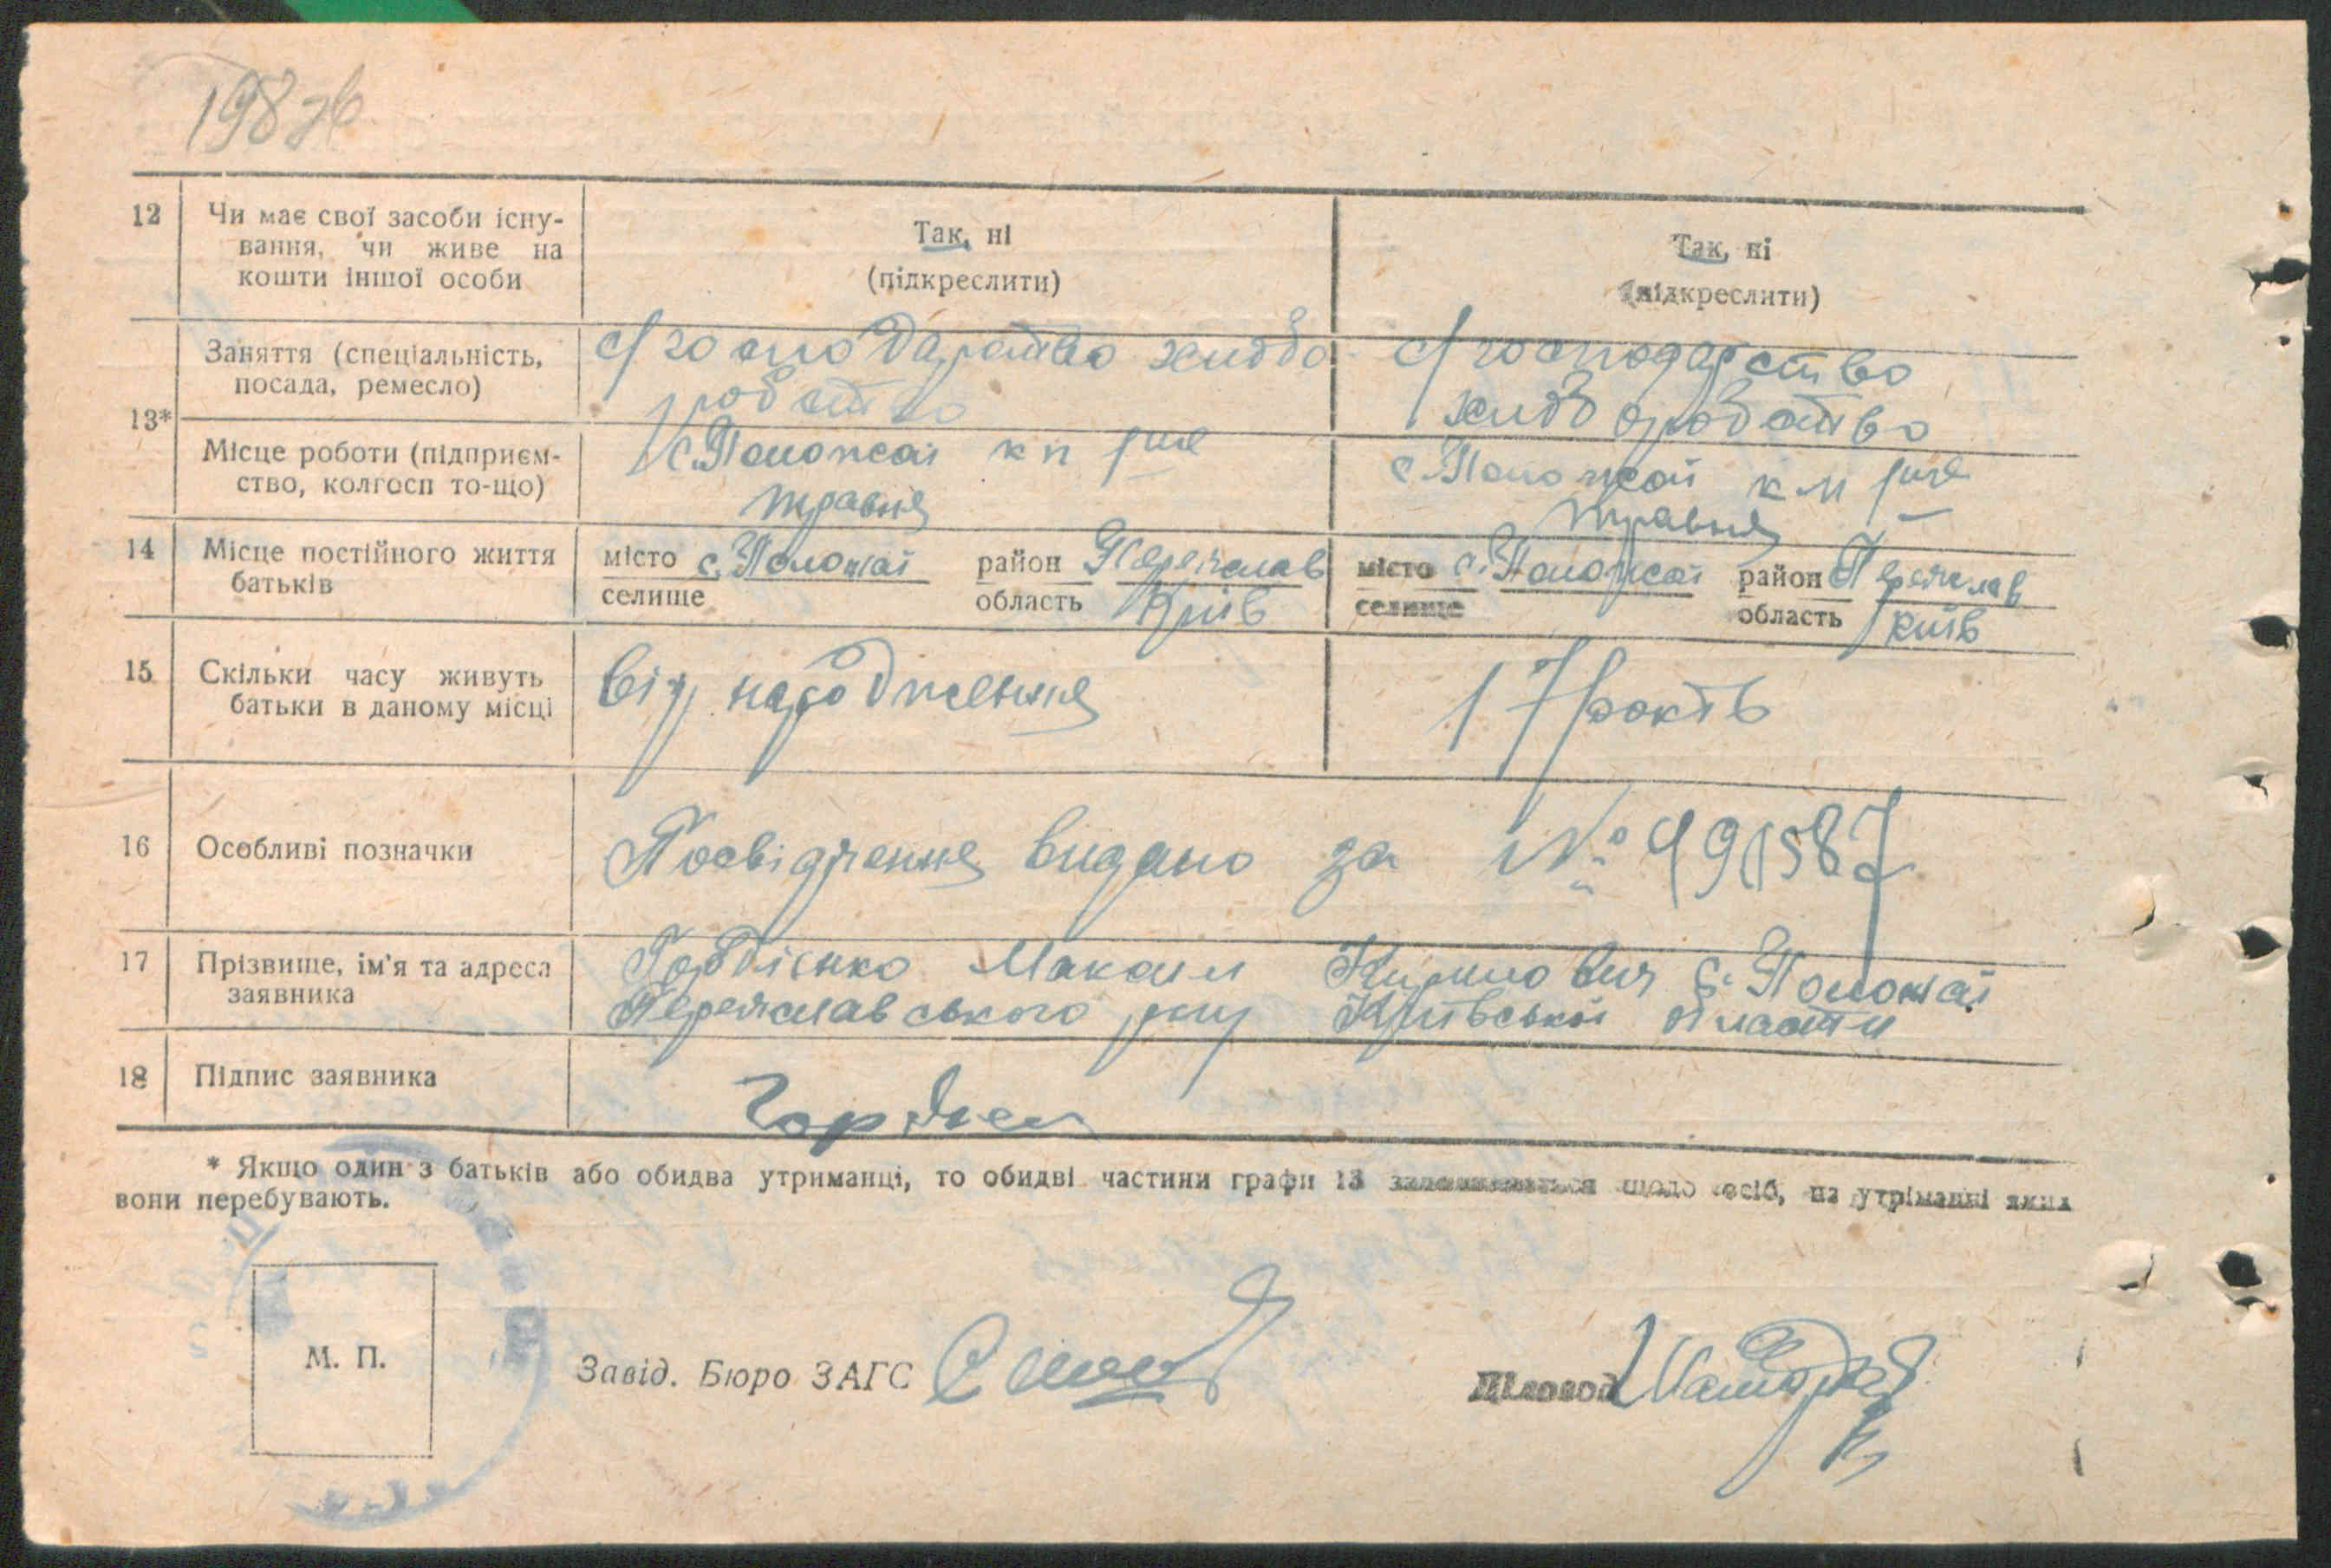 198 зв
12 Чи має свої засоби існу-
вання, чи живе на
кошти іншої особи
Так, ні
(підкреслити)
Так, ні
(підкреслити)
13*
Заняття (спеціальність,
посада, ремесло)
с/господарство хлібо
робство
с/господарство
хліборобство
Місце роботи (підприєм-
ство, колгосп то-що)
с. Положаї к п
травня
с. Положаї
травня
14 Місце постійного життя
батьків
місто с. Положаї район Переяслав
селище область Київ
місто с. Положаї район Переяслав
селище область Київ
15 Скільки часу живуть
батьки в даному місці
від народження
17 років
16 Особливі позначки
Посвідчення видано за № 491587
17 Прізвище, ім'я та адреса
заявника
Гордієнко Максим Кирилович с. Положаї
Переяславського р-ну Київської области
18 Підпис заявника
* Якщо один з батьків або обидва утриманці, то обидві частини графи 13 заповнюються щодо осіб, на утріманні яких
вони перебувають.
М. П.
Завід. Бюро ЗАГС
Діловод